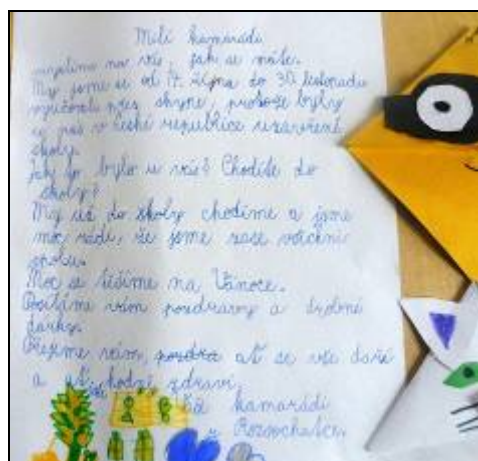 Milí kamarádi
myslíme na vás, jak se máte.
My jsme se od 14. října do 30. listopadu
vyučovali přes skype, protože byly
u nás v České republice uzavřené
školy.
Jak to bylo u vás? Chodíte do
školy?
My už do školy chodíme a jsme
moc rádi, že jsme zase všichni
spolu.
Moc se těšíme na Vánoce.
Posíláme vám pozdravy a drobné
dárky.
Přejeme vám, ať se vše daří
a ať hodně zdraví.
kamarádi
z Rozsochatce.